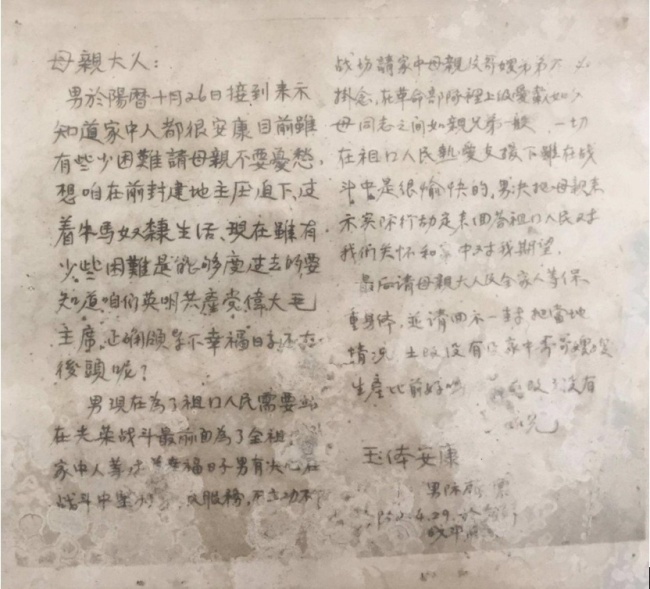 母親大人：
男於陽曆十月26日接到来示
知道家中人都很安康目前雖
有些少困難請母親不要憂愁，
想咱在前封建地主压迫下，过
着牛馬奴隸生活、現在雖有
少些困難是能够度过去的要
知道咱们英明共產党偉大毛
主席，正确領导下幸福日子还在
後頭呢？
男現在為了祖囗人民需要站
在光荣战斗最前面為了全祖
家中人等 幸福日子男有决心在
战斗中 服務，不立功不
战场請家中母親及哥嫂弟弟不必
掛念，在革命部隊裡上级愛戴如父
母同志之间如親兄弟一般 一切
在祖囗人民熱愛支援下雖在战
斗中是很愉快的，男决把母親来
示实际行动是来回答祖囗人民对
我们关怀和 中对我期望，
最后请母親大人民全家人等保
重身体，並请回示一封把當地
情况 土改没有 家中哥哥嫂嫂
生產比前好吗 没有
玉体安康
男
4.29.